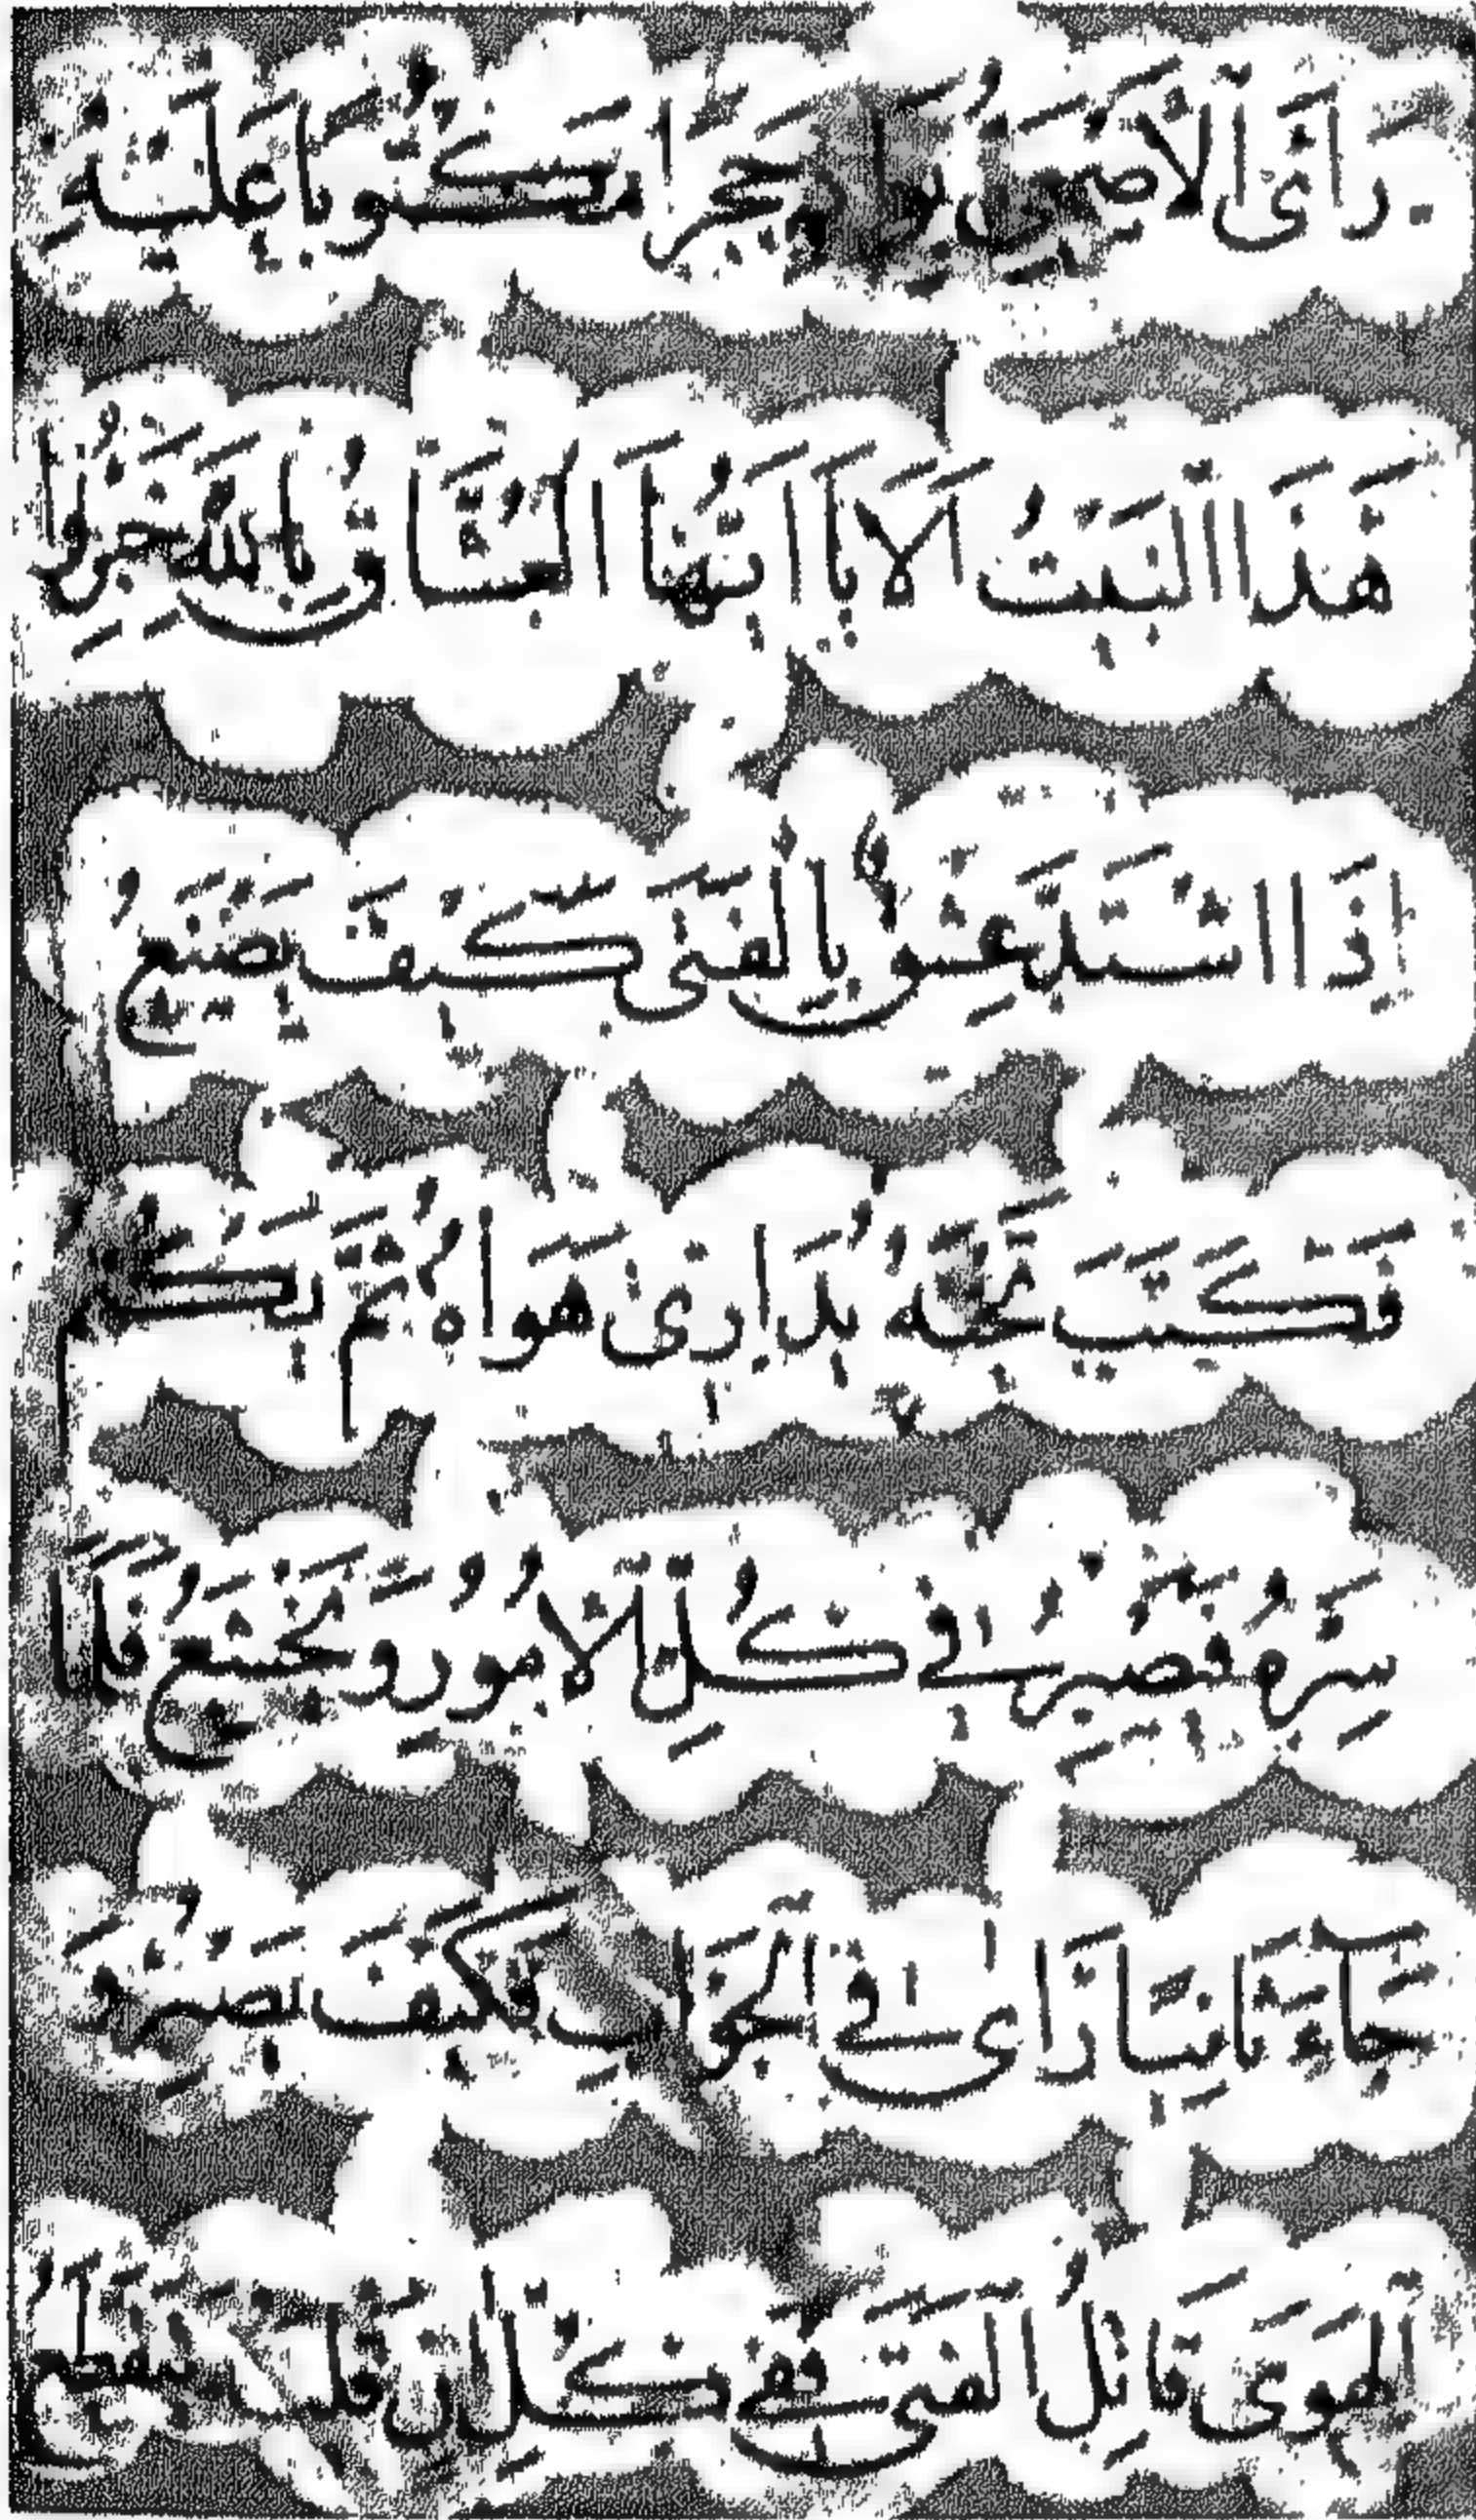 رَأَى الْأَصْمَعِيُّ يَوْمًا حَجَرًا مَكْتُوبًا عَلَيْهِ
هَذَا الْبَيْتُ أَلَا يَا أَيُّهَا الْعُشَّاقُ بِاللهِ خَبِّرُوا
إِذَا اشْتَدَّ عِشْقٌ بِالْفَتَى كَيْفَ يَصْنَعُ
فَكَتَبَ تَحْتَهُ يُدَارِي هَوَاهُ ثُمَّ يَكْتُمُ
سِرَّهُ وَيَصْبِرُ فِي كُلِّ الْأُمُورِ وَيَخْشَعُ فَلَمَّا
جَاءَ ثَانِيًا رَأَى فِي الْجَوَابِ فَكَيْفَ يَصْبِرُ وَ
الْهَوَى قَاتِلُ الْفَتَى فَفِي كُلِّ آنٍ قَلْبُهُ يَتَقَطَّعُ